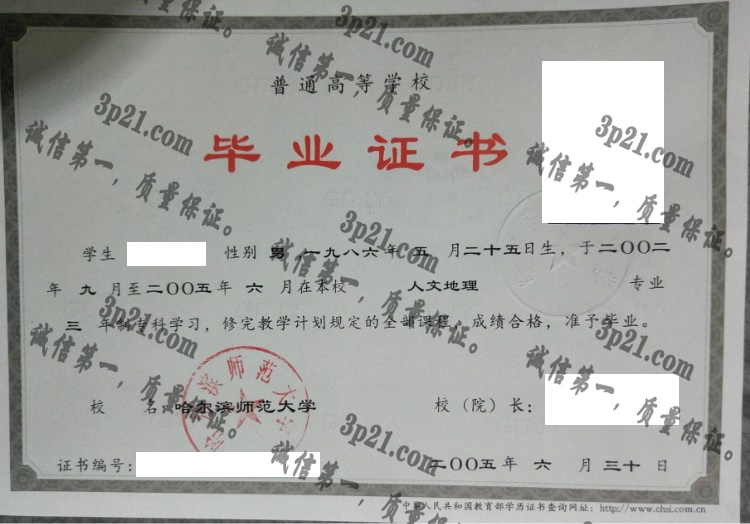 普通高等学校
毕业证书
学生 性别 男，一九八六年 五 月二十五日生，于二〇〇二
年 九 月至二〇〇五年 六 月在本校 人文地理 专业
三 年制专科学习，修完教学计划规定的全部课程，成绩合格，准予毕业。
校 名：哈尔滨师范大学 校（院）长：
证书编号： 二〇〇五年 六 月 三十 日
中华人民共和国教育部学历证书查询网址：http://www.chsi.com.cn
3p21.com
诚信第一，质量保证。
3p21.com
诚信第一，质量保证。
3p21.com
诚信第一，质量保证。
3p21.com
诚信第一，质量保证。
3p21.com
诚信第一，质量保证。
3p21.com
诚信第一，质量保证。
3p21.com
诚信第一，质量保证。
3p21.com
诚信第一，质量保证。